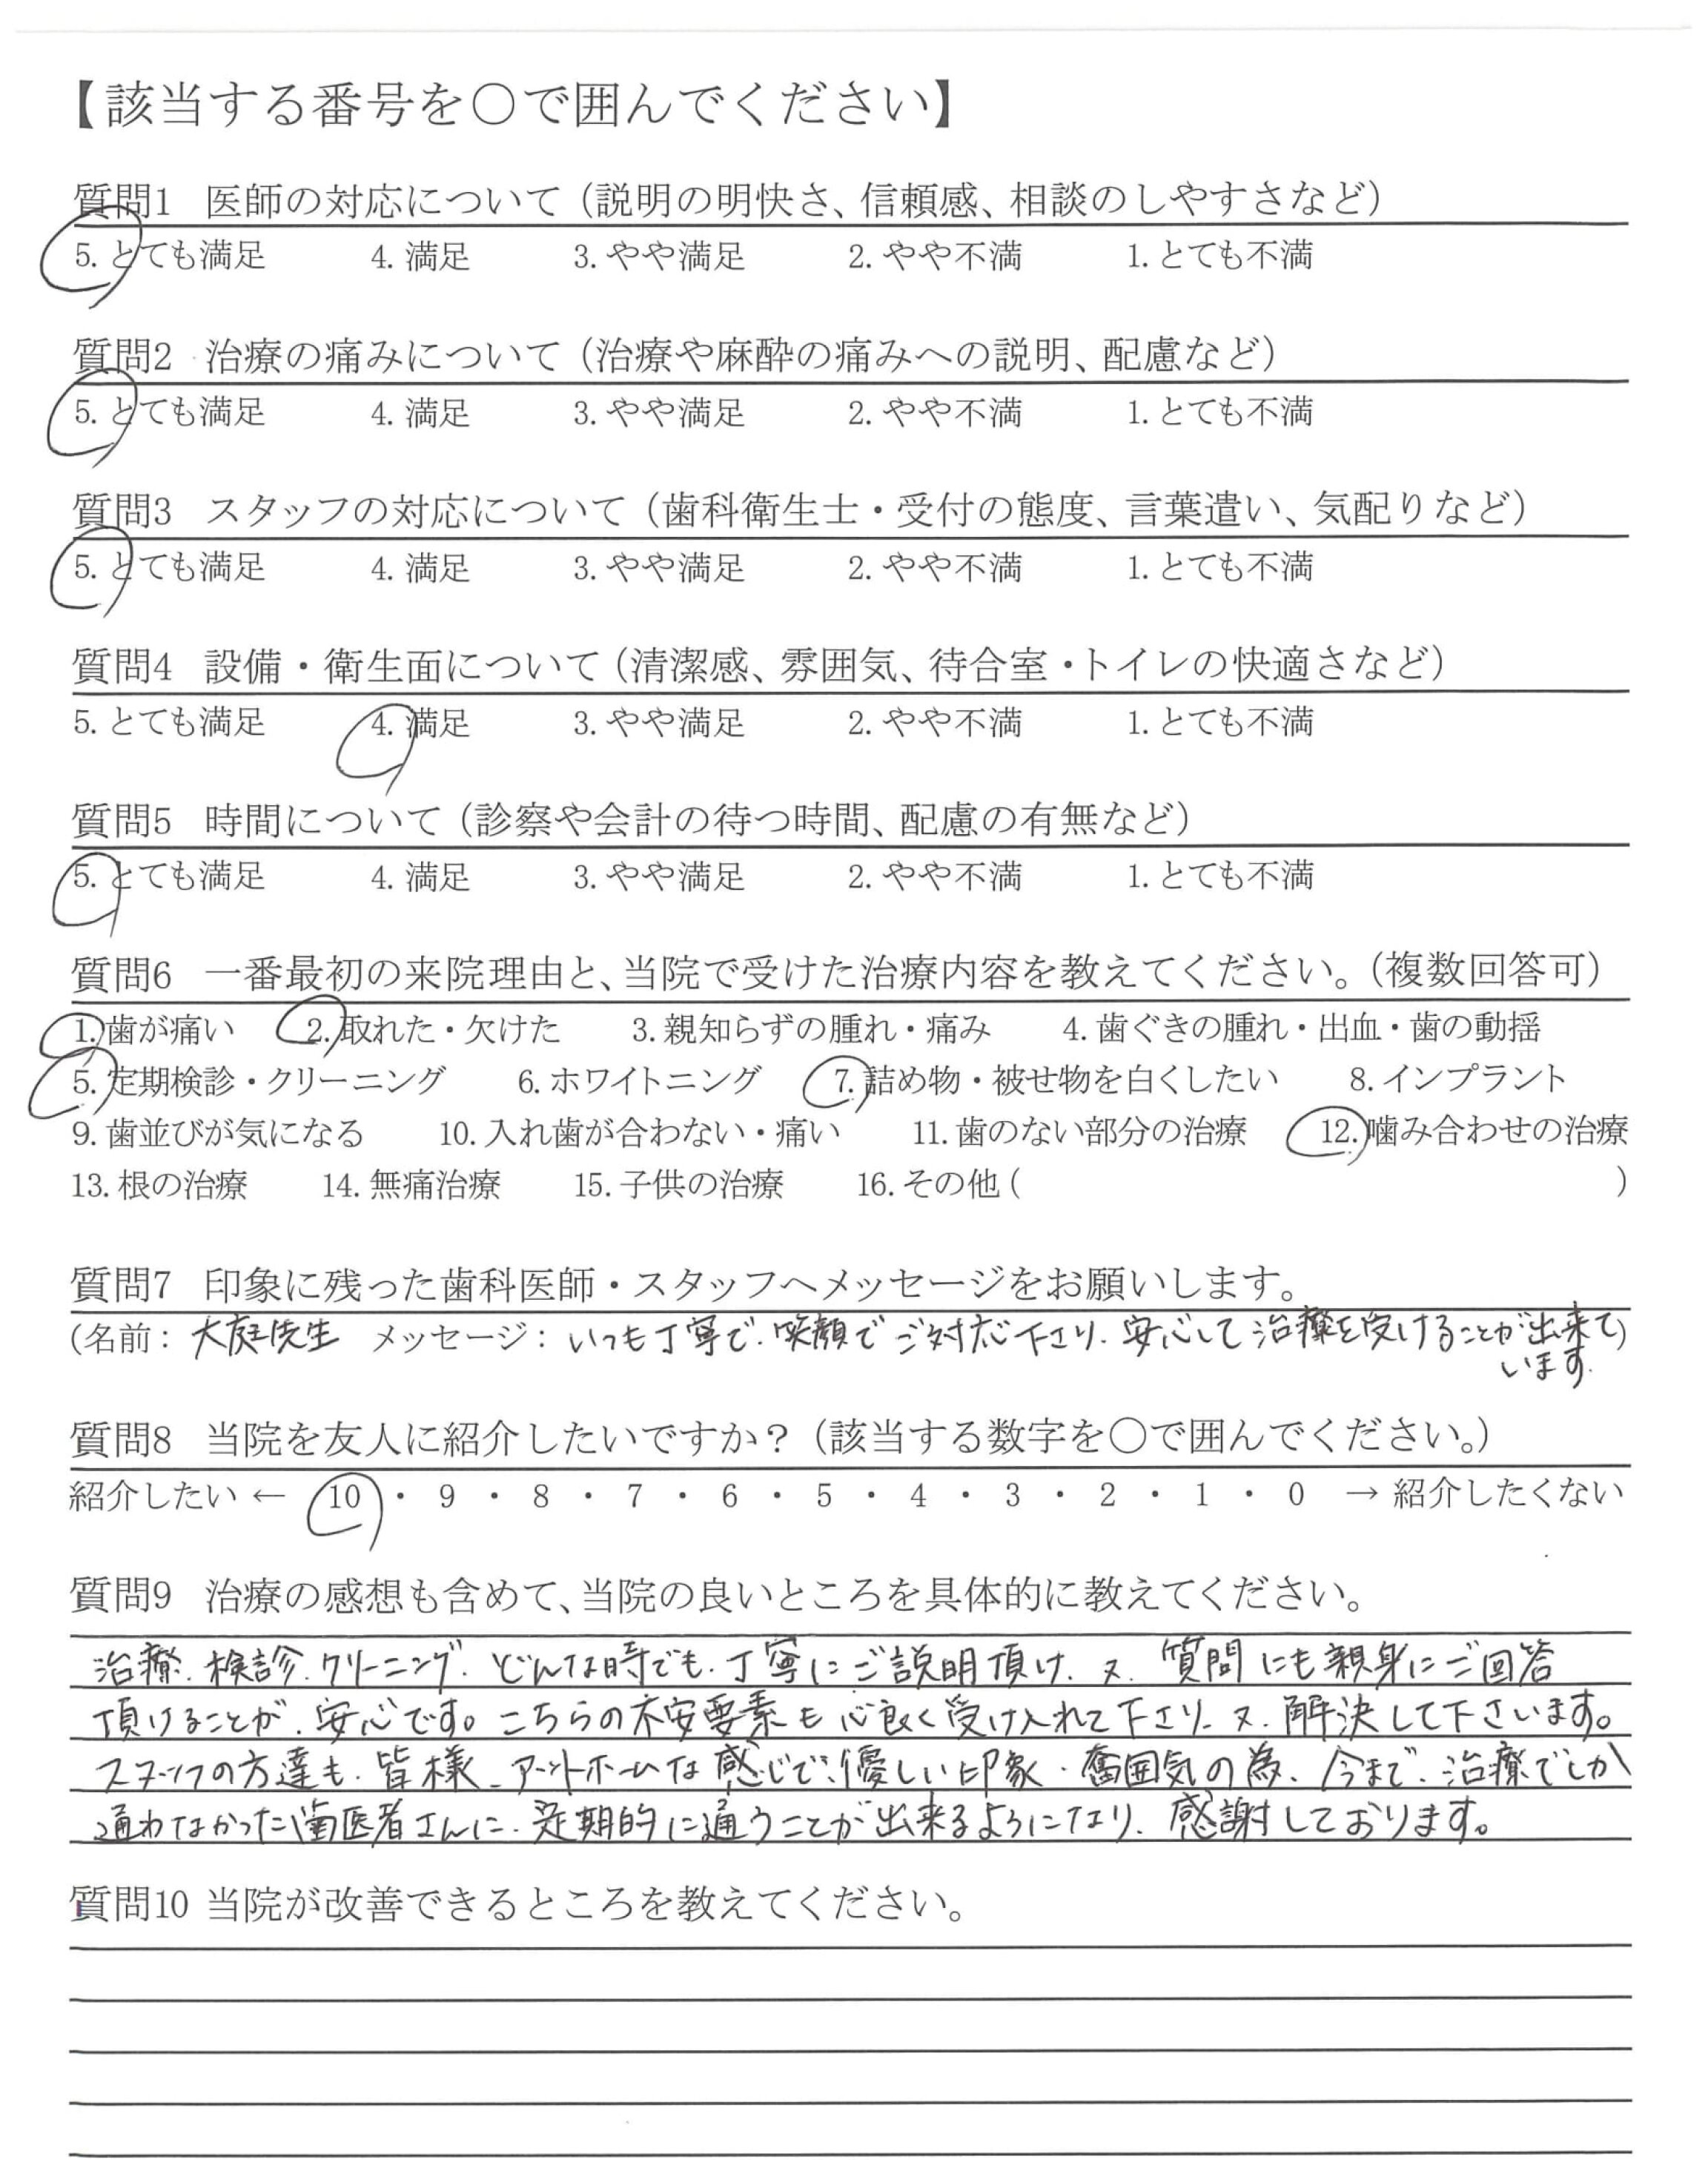 【該当する番号を○で囲んでください】
質問1 医師の対応について（説明の明快さ、信頼感、相談のしやすさなど）
5. とても満足 4. 満足 3. やや満足 2. やや不満 1. とても不満
質問2 治療の痛みについて（治療や麻酔の痛みへの説明、配慮など）
5. とても満足 4. 満足 3. やや満足 2. やや不満 1. とても不満
質問3 スタッフの対応について（歯科衛生士・受付の態度、言葉遣い、気配りなど）
5. とても満足 4. 満足 3. やや満足 2. やや不満 1. とても不満
質問4 設備・衛生面について（清潔感、雰囲気、待合室・トイレの快適さなど）
5. とても満足 4. 満足 3. やや満足 2. やや不満 1. とても不満
質問5 時間について（診察や会計の待つ時間、配慮の有無など）
5. とても満足 4. 満足 3. やや満足 2. やや不満 1. とても不満
質問6 一番最初の来院理由と、当院で受けた治療内容を教えてください。（複数回答可）
1. 歯が痛い 2. 取れた・欠けた 3. 親知らずの腫れ・痛み 4. 歯ぐきの腫れ・出血・歯の動揺
5. 定期検診・クリーニング 6. ホワイトニング 7. 詰め物・被せ物を白くしたい 8. インプラント
9. 歯並びが気になる 10. 入れ歯が合わない・痛い 11. 歯のない部分の治療 12. 噛み合わせの治療
13. 根の治療 14. 無痛治療 15. 子供の治療 16. その他（ ）
質問7 印象に残った歯科医師・スタッフへメッセージをお願いします。
（名前：大庭先生 メッセージ：いつも丁寧で、笑顔でご対応下さり、安心して治療を受けることが出来て）
います。
質問8 当院を友人に紹介したいですか？（該当する数字を○で囲んでください。）
紹介したい ← 10 ・ 9 ・ 8 ・ 7 ・ 6 ・ 5 ・ 4 ・ 3 ・ 2 ・ 1 ・ 0 → 紹介したくない
質問9 治療の感想も含めて、当院の良いところを具体的に教えてください。
治療、検診、クリーニング、どんな時でも、丁寧にご説明頂け、又、質問にも親身にご回答
頂けることが、安心です。こちらの不安要素も心良く受け入れて下さり、又、解決して下さいます。
スタッフの方達も、皆様、アットホームな感じで、優しい印象・奮囲気の為、今まで、治療でしか
通わなかった歯医者さんに、定期的に通うことが出来るようになり、感謝しております。
質問10 当院が改善できるところを教えてください。